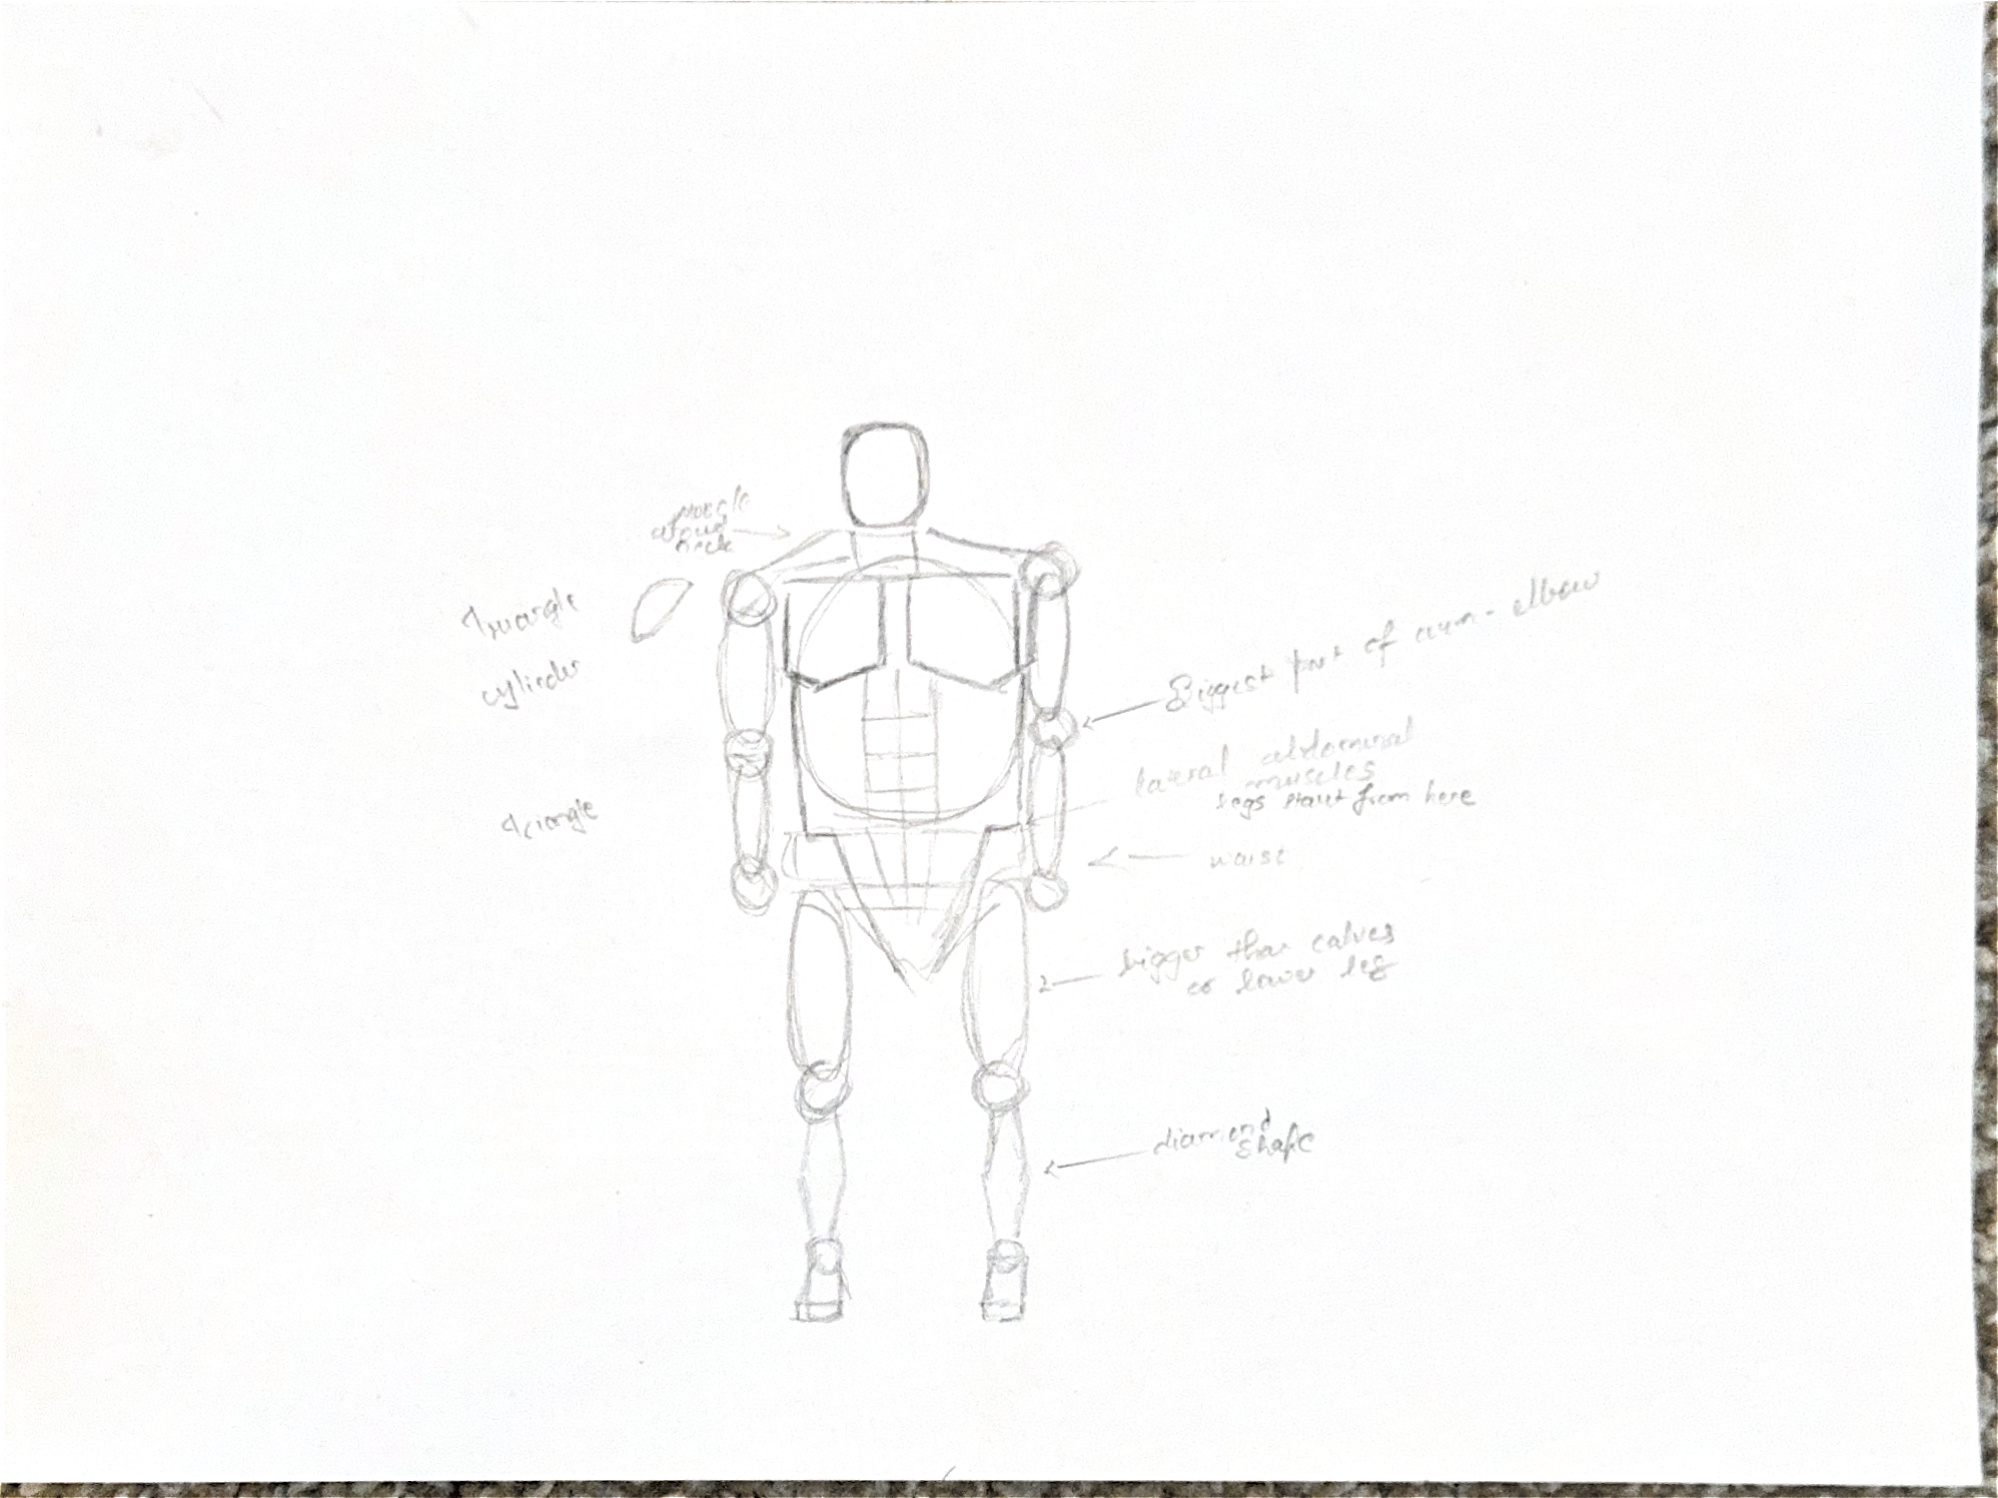 muscle
around
neck
Triangle
cylinder
Triangle
Biggest part of arm - elbow
lateral abdominal
muscles
legs start from here
waist
bigger than calves
or lower leg
diamond
shape